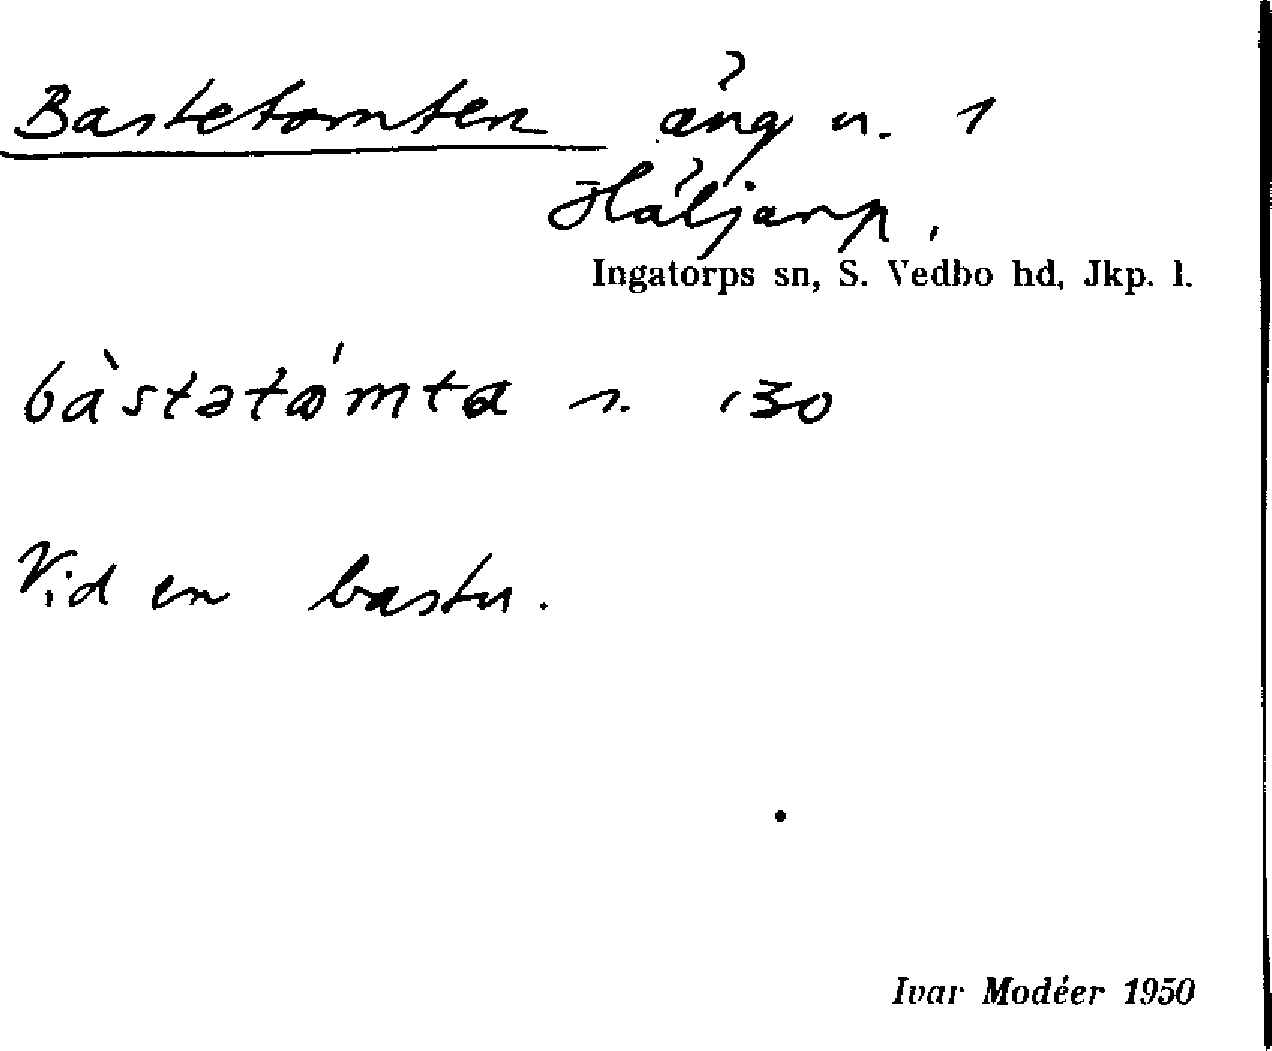 Bastetomten äng u. 1
Häljarp.
Ingatorps sn, S. Vedbo hd, Jkp. l.
bàstatómta n. 130
Vid en bastu.
Ivar Modéer 1950